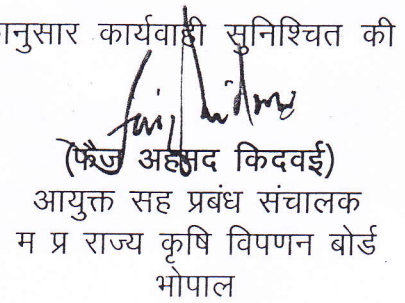 ानुसार कार्यवाही सुनिश्चित की
(फैज अहमद किदवई)
आयुक्त सह प्रबंध संचालक
म प्र राज्य कृषि विपणन बोर्ड
भोपाल